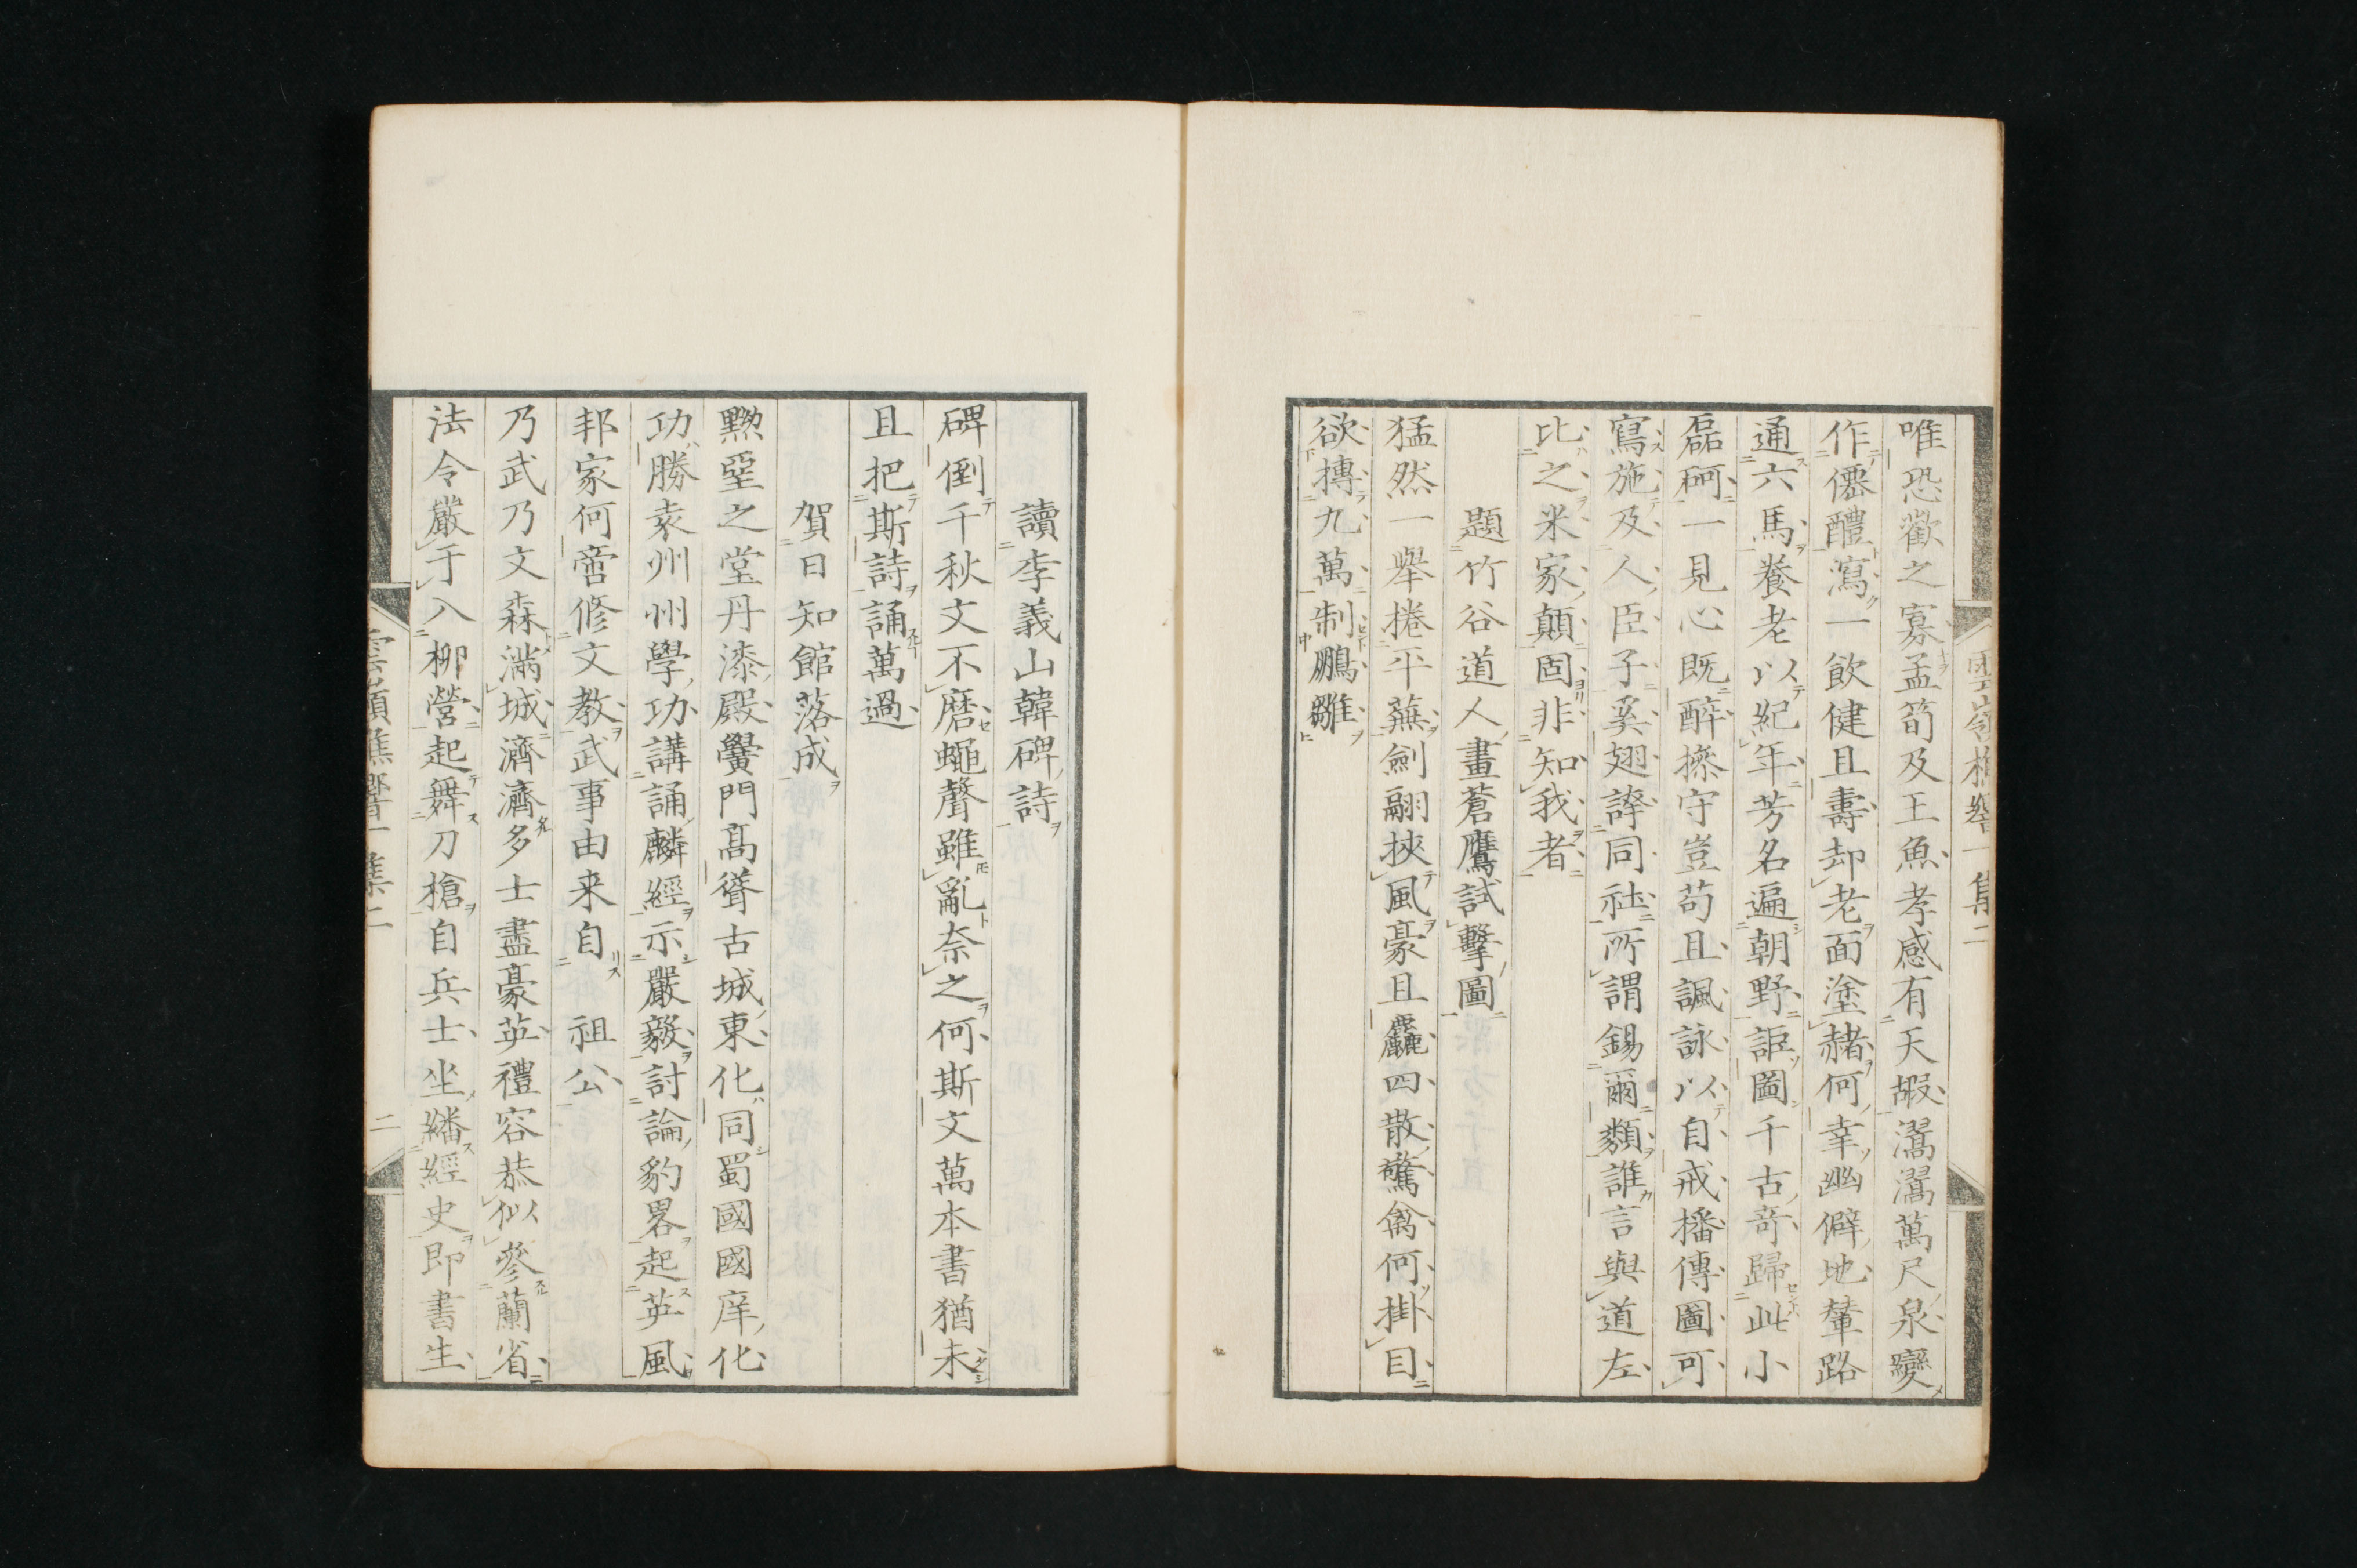 唯恐歡之寡孟筍及王魚孝感有天嘏瀥瀥萬尺泉變
作僊醴瀉一飲健且壽却老面塗赭何幸幽僻地輦路
通六馬養老以紀年芳名遍朝野詎圖千古竒歸此小
磊砢一見心既醉摖守豈苟且諷詠以自戒播傳圖可
寫施及人臣子奚翅誇同社所謂錫爾類誰言與道左
比之米家顛固非知我者
題竹谷道人畫蒼鷹試擊圖
猛然一舉捲平蕪劍翮挾風豪且麤四散驚禽何掛目
欲摶九萬制鵬雛
讀李義山韓碑詩
碑倒千秋文不磨蠅聲雖亂奈之何斯文萬本書猶未
且把斯詩誦萬過
賀日知館落成
黝堊之堂丹漆殿黌門髙聳古城東化同蜀國國庠化
功勝袁州州學功講誦麟經示嚴毅討論豹畧起英風
邦家何啻修文教武事由来自祖公
乃武乃文森滿城濟濟多士盡豪英禮容恭似參蘭省
法令嚴于入柳營起舞刀槍自兵士坐繙經史即書生
二